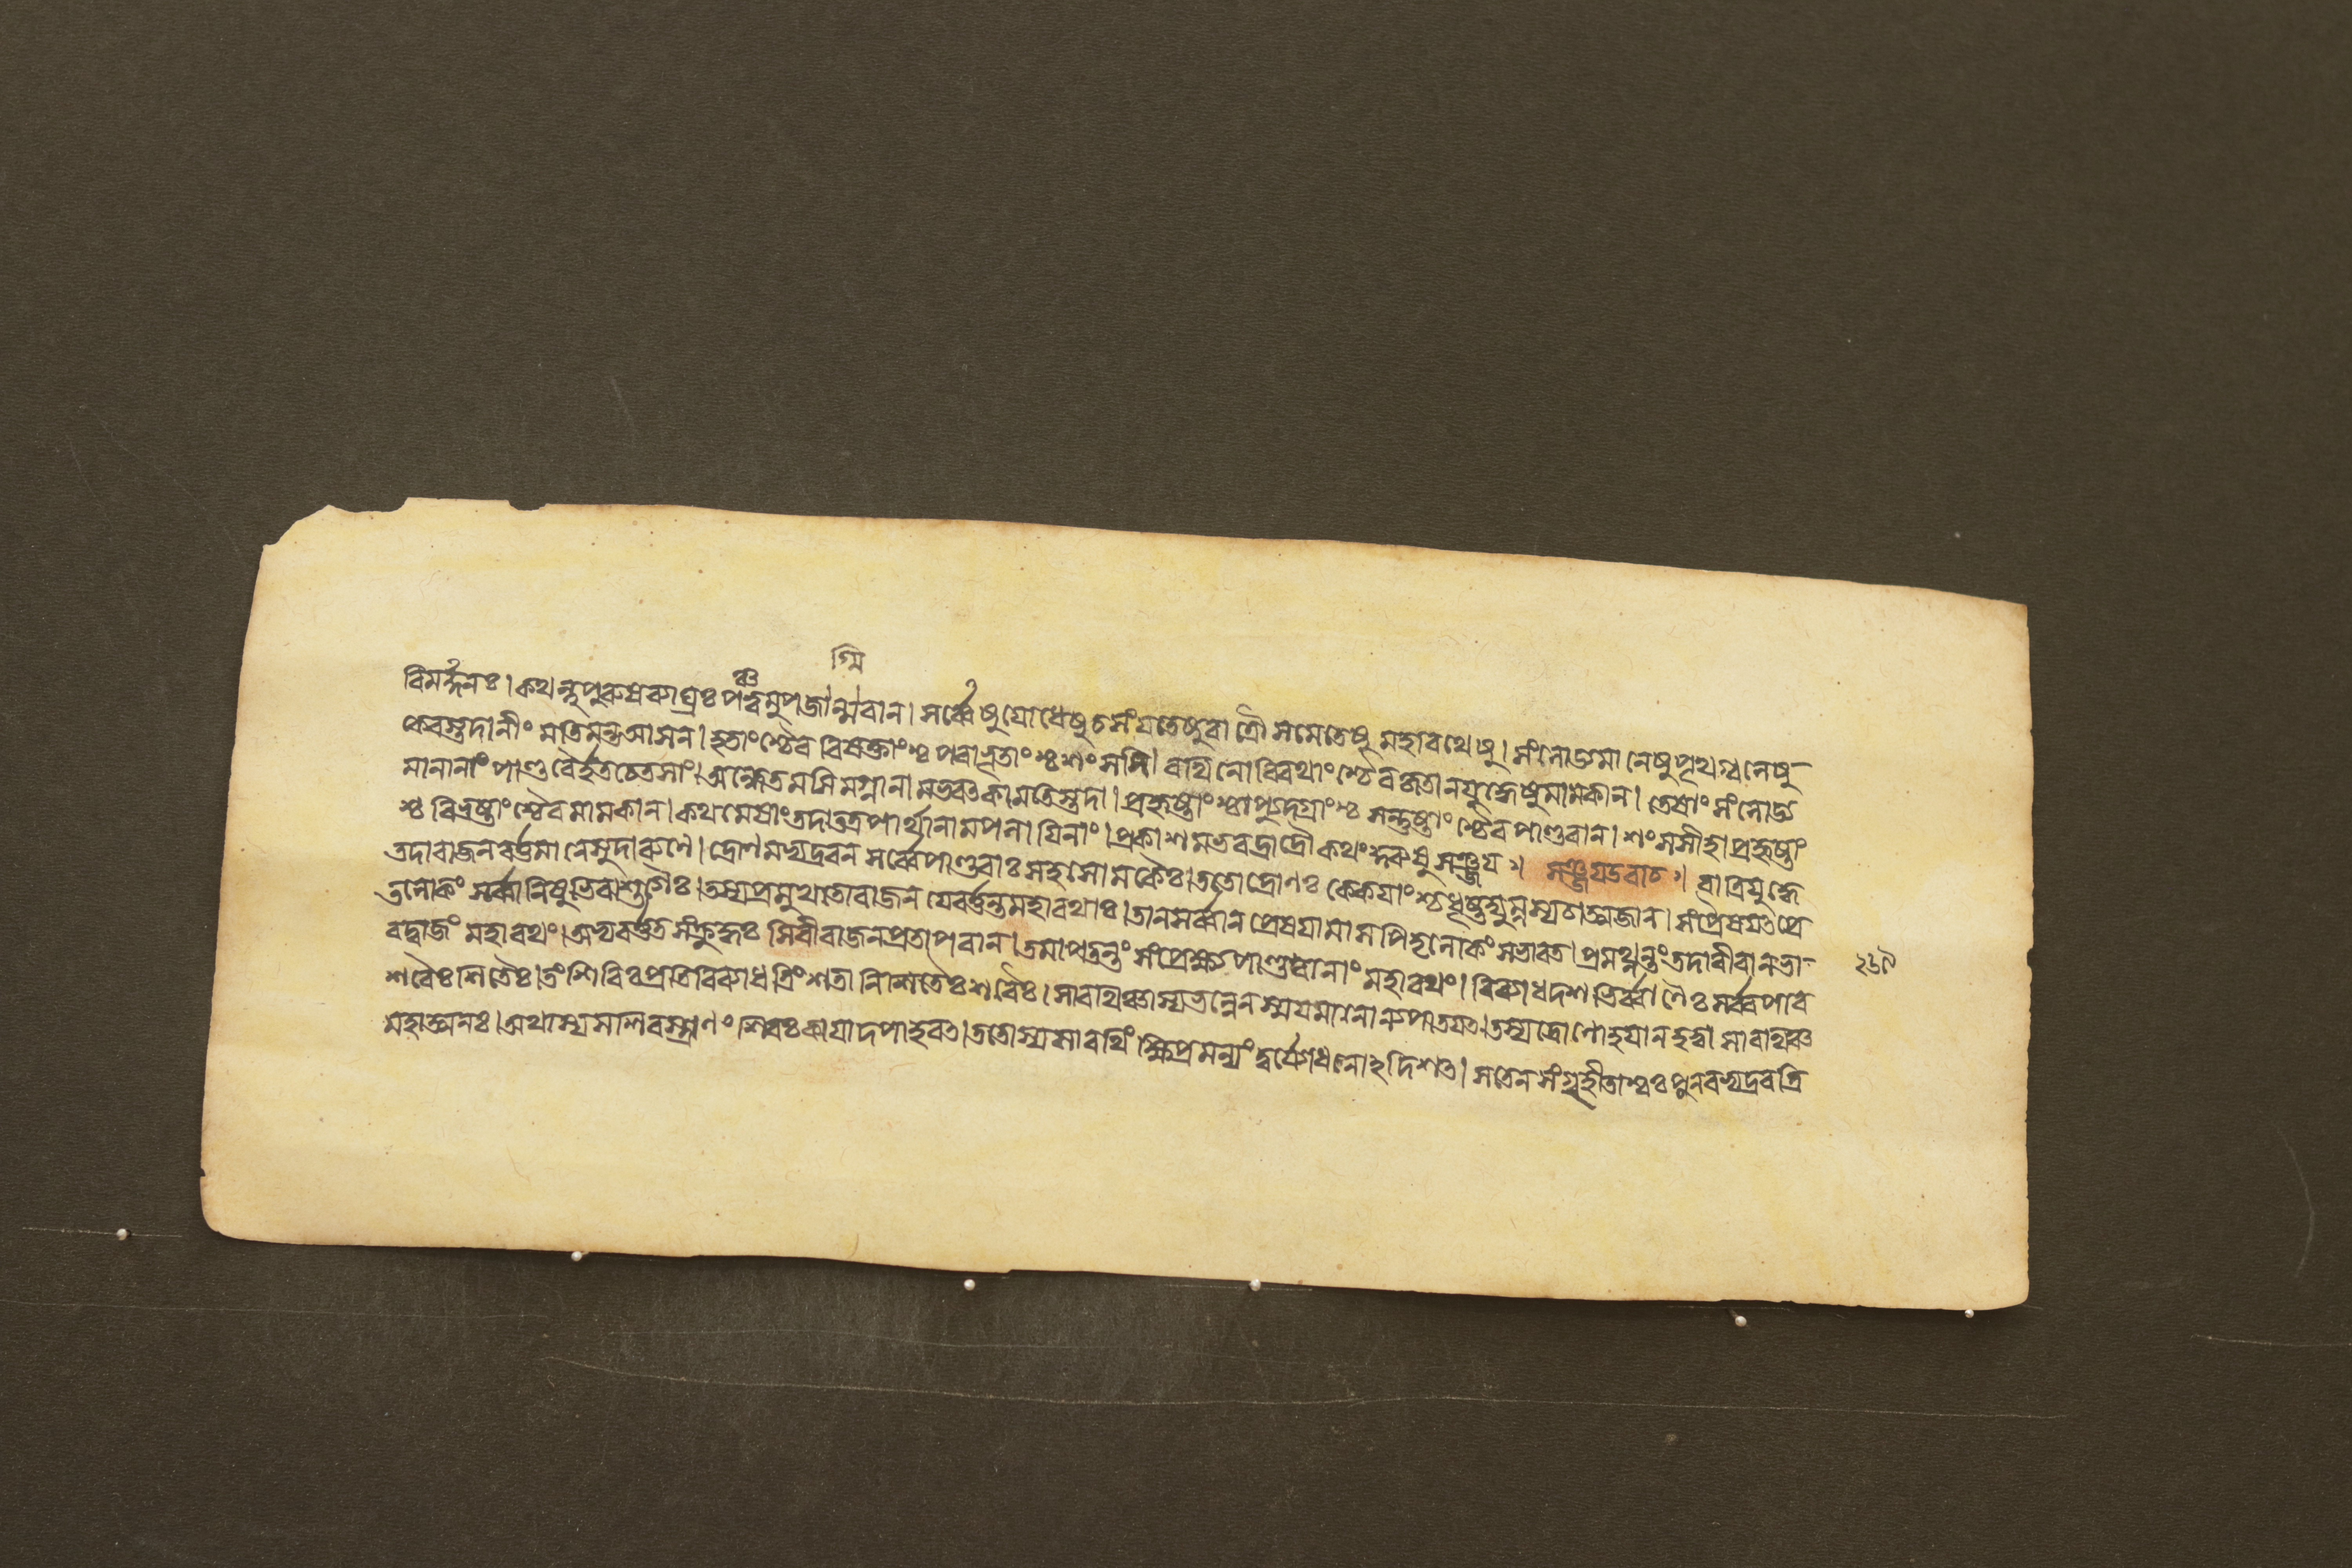 গ্মি
বিমর্দ্দনঃ।কথন্নুপুরুষব্যাঘ্রঃপঞ্চত্বমুপজান্মবান।সর্ব্বেষুযোধেষুচসংযতেষুরাত্রৌসমেতেষুমহারথেষু।সংলোড্যমানেষুপৃথগ্বলেষু
কেবস্তদানীংমতিমন্তআসন।হতাংশ্চৈববিষক্তাংশ্চপরাভূতাংশ্চশংসসি।রথিনোবিরথাংশ্চৈবকৃতানযুদ্ধেষুমামকান।তেষাংসংলোড্য
মানানাংপাণ্ডবৈর্হতচেতসাং।অন্ধেতমসিমগ্নানামভবৎকামতিস্তদা।প্রহৃষ্টাংশ্চাপ্যুদগ্রাংশ্চসন্তুষ্টাংশ্চৈবপাণ্ডবান।শংসসীহাপ্রহৃষ্টাং
শ্চবিভ্রষ্টাংশ্চৈবমামকান।কথমেষাংতদাতত্রপার্থানামপলায়িনাং।প্রকাশমভবদ্রাত্রৌকথংকুরুষুসঞ্জয়॥ সঞ্জয়উবাচ॥রাত্রিযুদ্ধে
তদারাজনবর্ত্তমানেসুদারুণে।দ্রোণমভ্যদ্রবনসর্ব্বেপাণ্ডবাঃসহসোমকৈঃ।ততোদ্রোণঃকেকয়াংশ্চধৃষ্টদ্যুম্নস্যচাত্মজান।সংপ্রৈষয়ৎপ্রে
তলোকংসর্ব্বানিষুভিরাশুগৈঃ।তস্যপ্রমুখতোরাজনযেবর্ত্তন্তমহারথাঃ।তানসর্ব্বানপ্রেষয়ামাসপিতৃলোকংসভারত।প্রমথ্নন্তংতদাবীরানভা
রদ্বাজংমহারথং।অভ্যবর্ত্ততসংক্রুদ্ধঃসিবীরাজনপ্রতাপবান।তমাপতন্তংসংপ্রেক্ষ্যপাণ্ডবানাংমহারথং।বিব্যাধদশভির্ব্বাণৈঃসর্ব্বপার
শবৈঃশিতৈঃ।তংশিবিঃপ্রতিবিব্যাধত্রিংশতানিশিতৈঃশরৈঃ।সারথিঞ্চাস্যভল্লেনস্ময়মানোন্যপাতয়ৎ।তস্যদ্রোণোহয়ানহত্বাসারথিঞ্চ
মহাত্মনঃ।অথাস্যসশিরস্ত্রাণংশিরঃকায়াদপাহরৎ।ততোস্যসারথিংক্ষিপ্রমন্যংদুর্য্যোধনোঽদিশৎ।সতেনসংগৃহীতাশ্বঃপুনরভ্যদ্রবত্রি